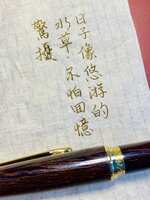 日子像悠游的
水草 不怕回憶
驚擾